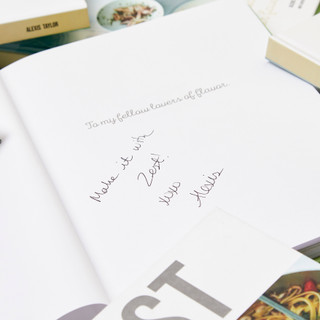 ALEXIS TAYLOR
To my fellow lovers of flavor
Make it with
Zest!
xoxo
Alexis
ST